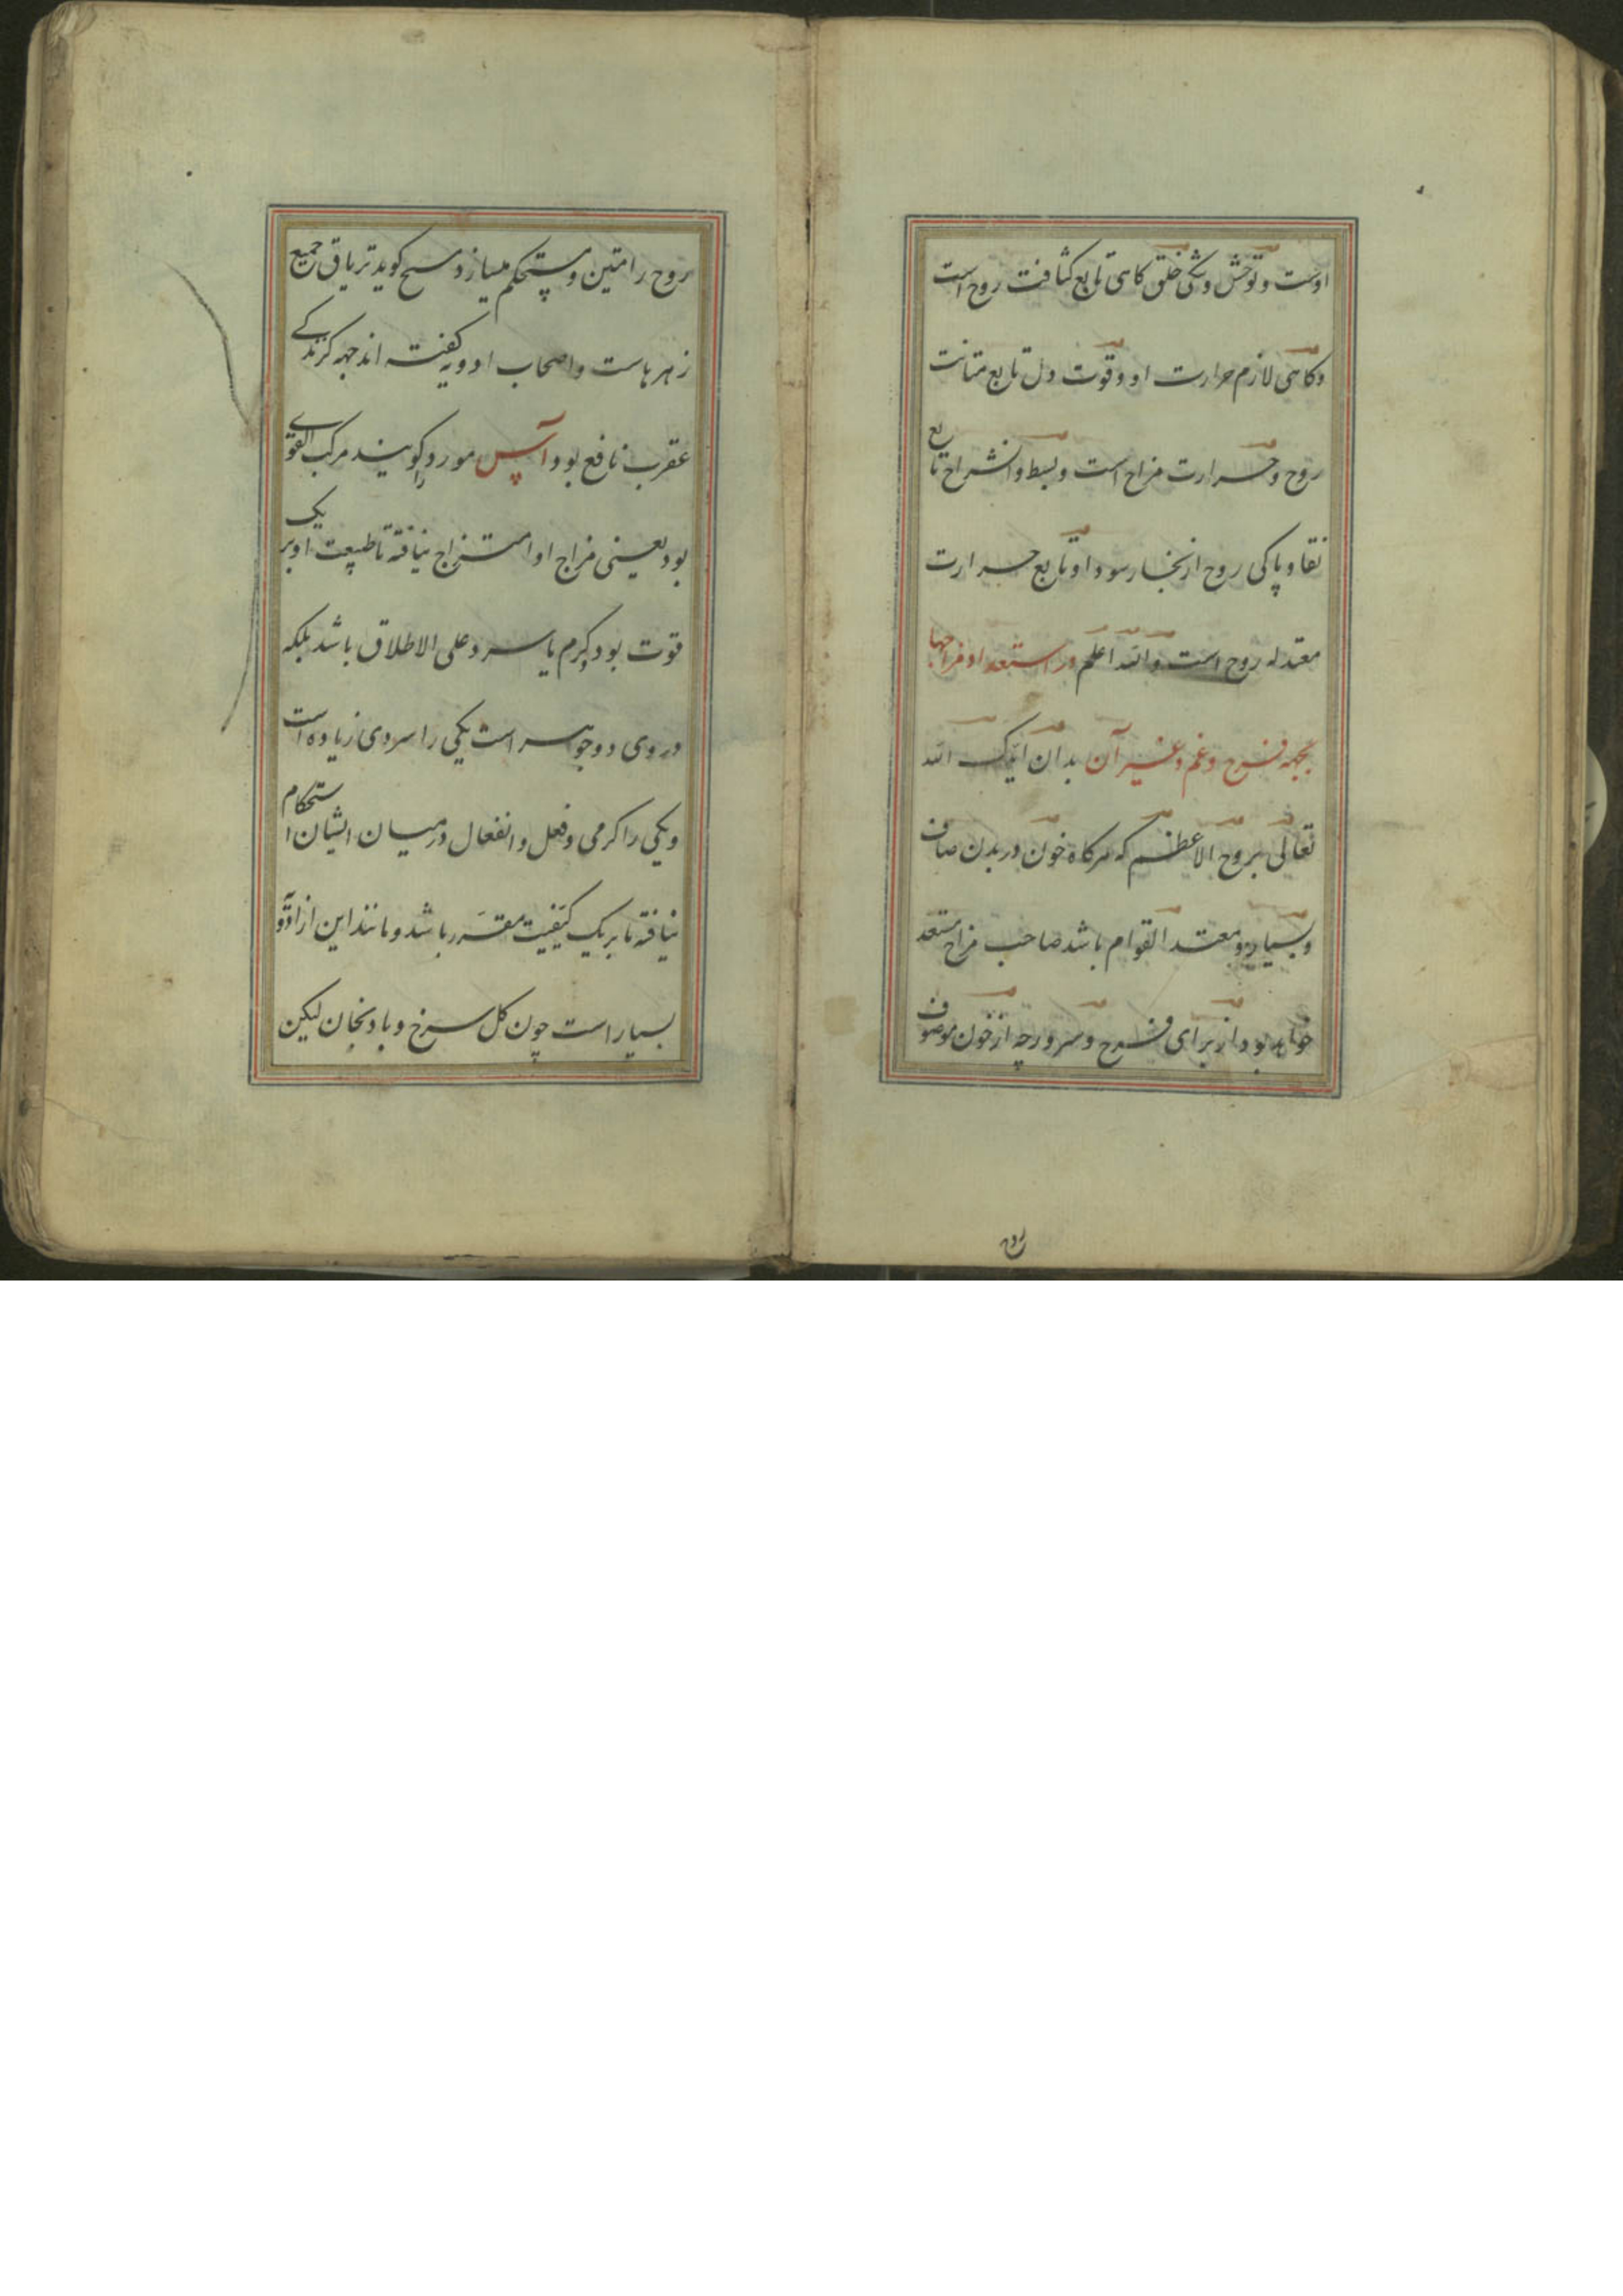 اوست و توحش و تنگی خلق کاهی تابع کثافت روح است
و کاهی لازم حرارت او و قوت دل تابع متانت
روح و حرارت مزاج است و بسط و انشراح تابع
نقا و پاکی روح از بخار سودا و تابع حرارت
معتدله روح است والله اعلم در استعداد مزاجها
بجهة فرح و غم و غیر آن بدان ایدک الله
تعالی بروح الاعظم که هرکاه خون در بدن صاف
و بسیار و معتدل القوام باشد صاحب مزاج مستعد
خواهد بود از برای فرح و سرور چه از خون موصوف
روح
روح را متین و مستحکم میسازد و مسیح کوید تریاق جمیع
زهرهاست و اصحاب ادویه کفته اند جهه کزندکی
عقرب نافع بود آس مورد را کویند مرکب القوی
بود یعنی مزاج او امتزاج نیافته تا طبیعت او بر یک
قوت بود کرم یا سرد علی الاطلاق باشد بلکه
در وی دو جوهر است یکی را سردی زیاده است
و یکی را کرمی و فعل و انفعال در میان ایشان استحکام
نیافته تا بر یک کیفیت مقرر باشد و مانند این از ادویه
بسیار است چون کل سرخ و بادنجان لیکن